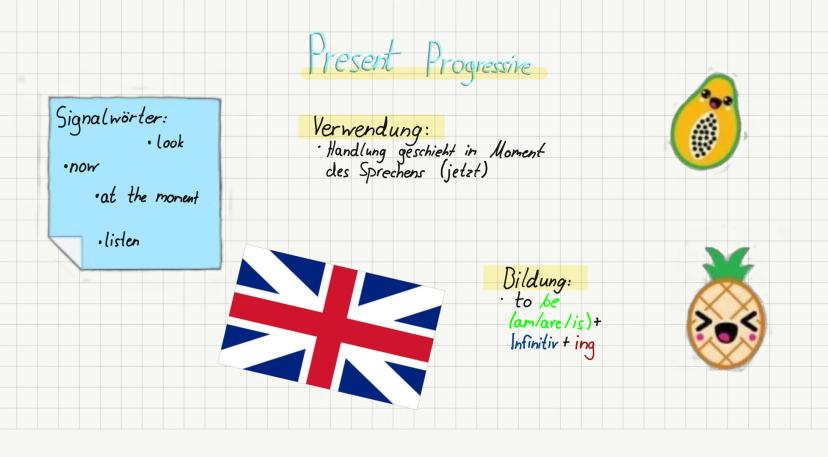 Present Progressive
Signalwörter:
• look
• now
• at the moment
• listen
Verwendung:
• Handlung geschieht in Moment
des Sprechens (jetzt)
Bildung:
• to be
(am/are/is)+
Infinitiv + ing